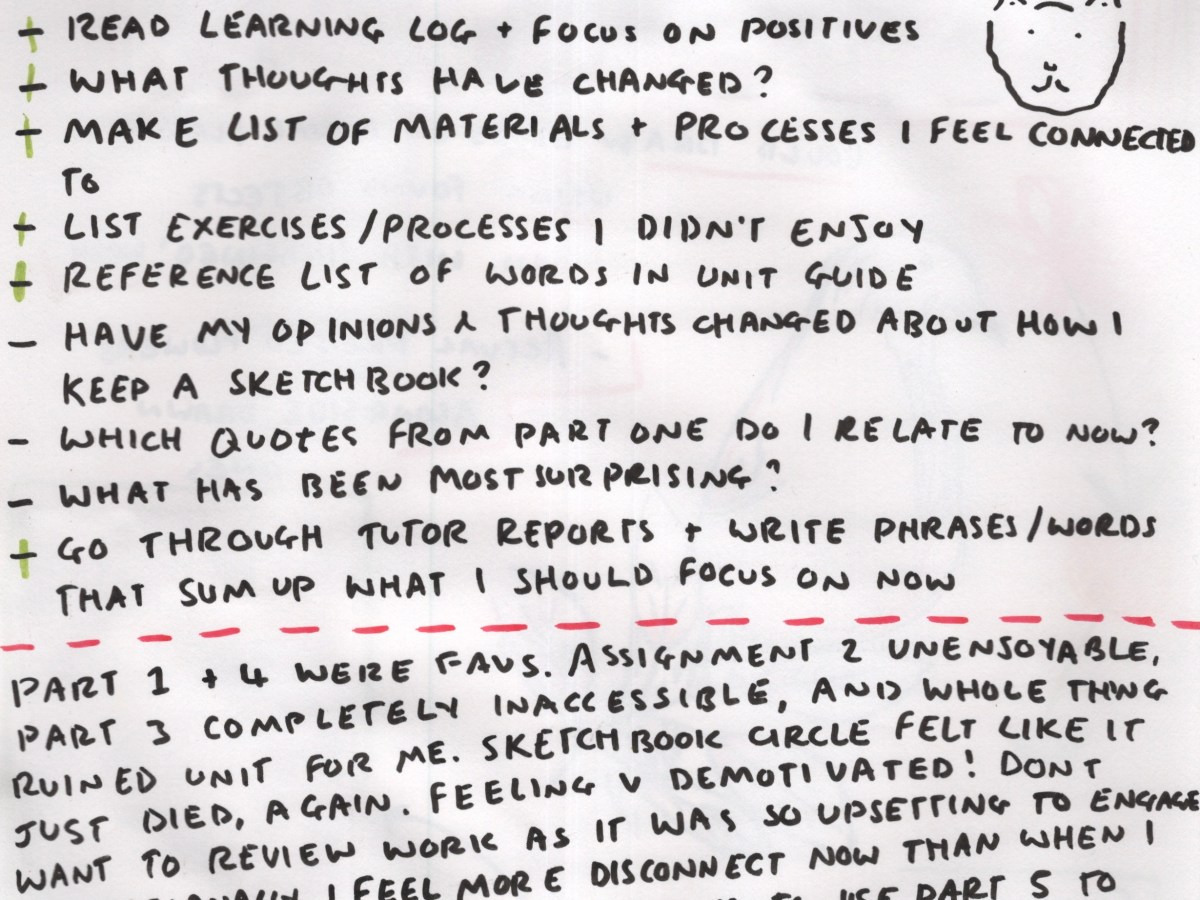 + READ LEARNING LOG + FOCUS ON POSITIVES
+ WHAT THOUGHTS HAVE CHANGED?
+ MAKE LIST OF MATERIALS + PROCESSES I FEEL CONNECTED
TO
+ LIST EXERCISES/PROCESSES I DIDN'T ENJOY
+ REFERENCE LIST OF WORDS IN UNIT GUIDE
- HAVE MY OPINIONS & THOUGHTS CHANGED ABOUT HOW I
KEEP A SKETCHBOOK?
- WHICH QUOTES FROM PART ONE DO I RELATE TO NOW?
- WHAT HAS BEEN MOST SURPRISING?
+ GO THROUGH TUTOR REPORTS + WRITE PHRASES/WORDS
THAT SUM UP WHAT I SHOULD FOCUS ON NOW
PART 1 + 4 WERE FAVS. ASSIGNMENT 2 UNENJOYABLE,
PART 3 COMPLETELY INACCESSIBLE, AND WHOLE THING
RUINED UNIT FOR ME. SKETCHBOOK CIRCLE FELT LIKE IT
JUST DIED, AGAIN. FEELING V DEMOTIVATED! DON'T
WANT TO REVIEW WORK AS IT WAS SO UPSETTING TO ENGAGE
I FEEL MORE DISCONNECT NOW THAN WHEN I
USE PART 5 TO